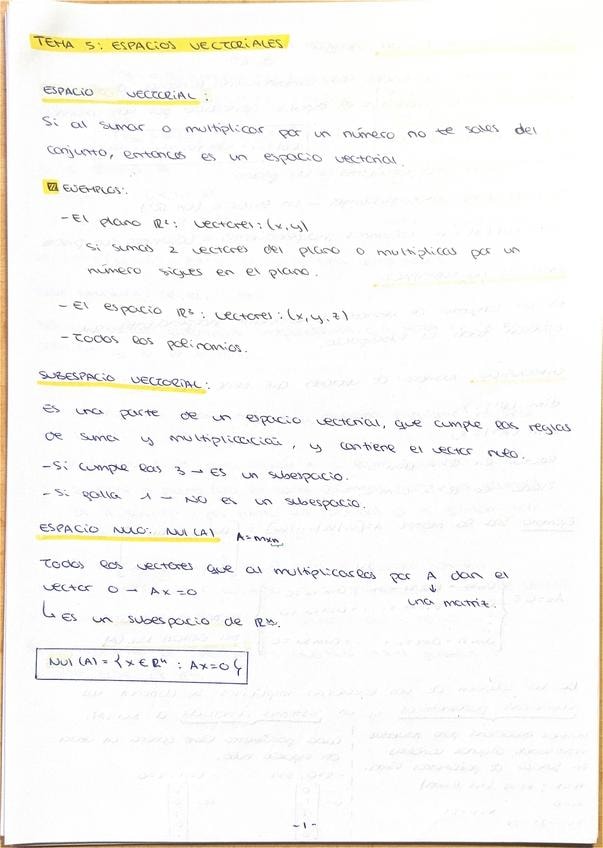 TEMA 5: ESPACIOS VECTORIALES
ESPACIO VECTORIAL:
Si al sumar o multiplicar por un número no te sales del
conjunto, entonces es un espacio vectorial.
EJEMPLOS:
- El plano R²: vectores: (x,y)
Si sumas 2 vectores del plano o multiplicas por un
número sigues en el plano.
- El espacio R³: vectores: (x,y,z)
- Todos los polinomios.
SUBESPACIO VECTORIAL:
Es una parte de un espacio vectorial, que cumple las reglas
de suma y multiplicación, y contiene el vector nulo.
- Si cumple las 3 → Es un subespacio.
- Si falla 1 → NO es un subespacio.
ESPACIO NULO: Nul (A) A=mxn
Todos los vectores que al multiplicarlos por A dan el
vector 0 → Ax=0 ↓ una matriz.
↳ Es un subespacio de Rⁿ.
Nul (A) = {x ∈ Rⁿ : Ax=0}
-1-